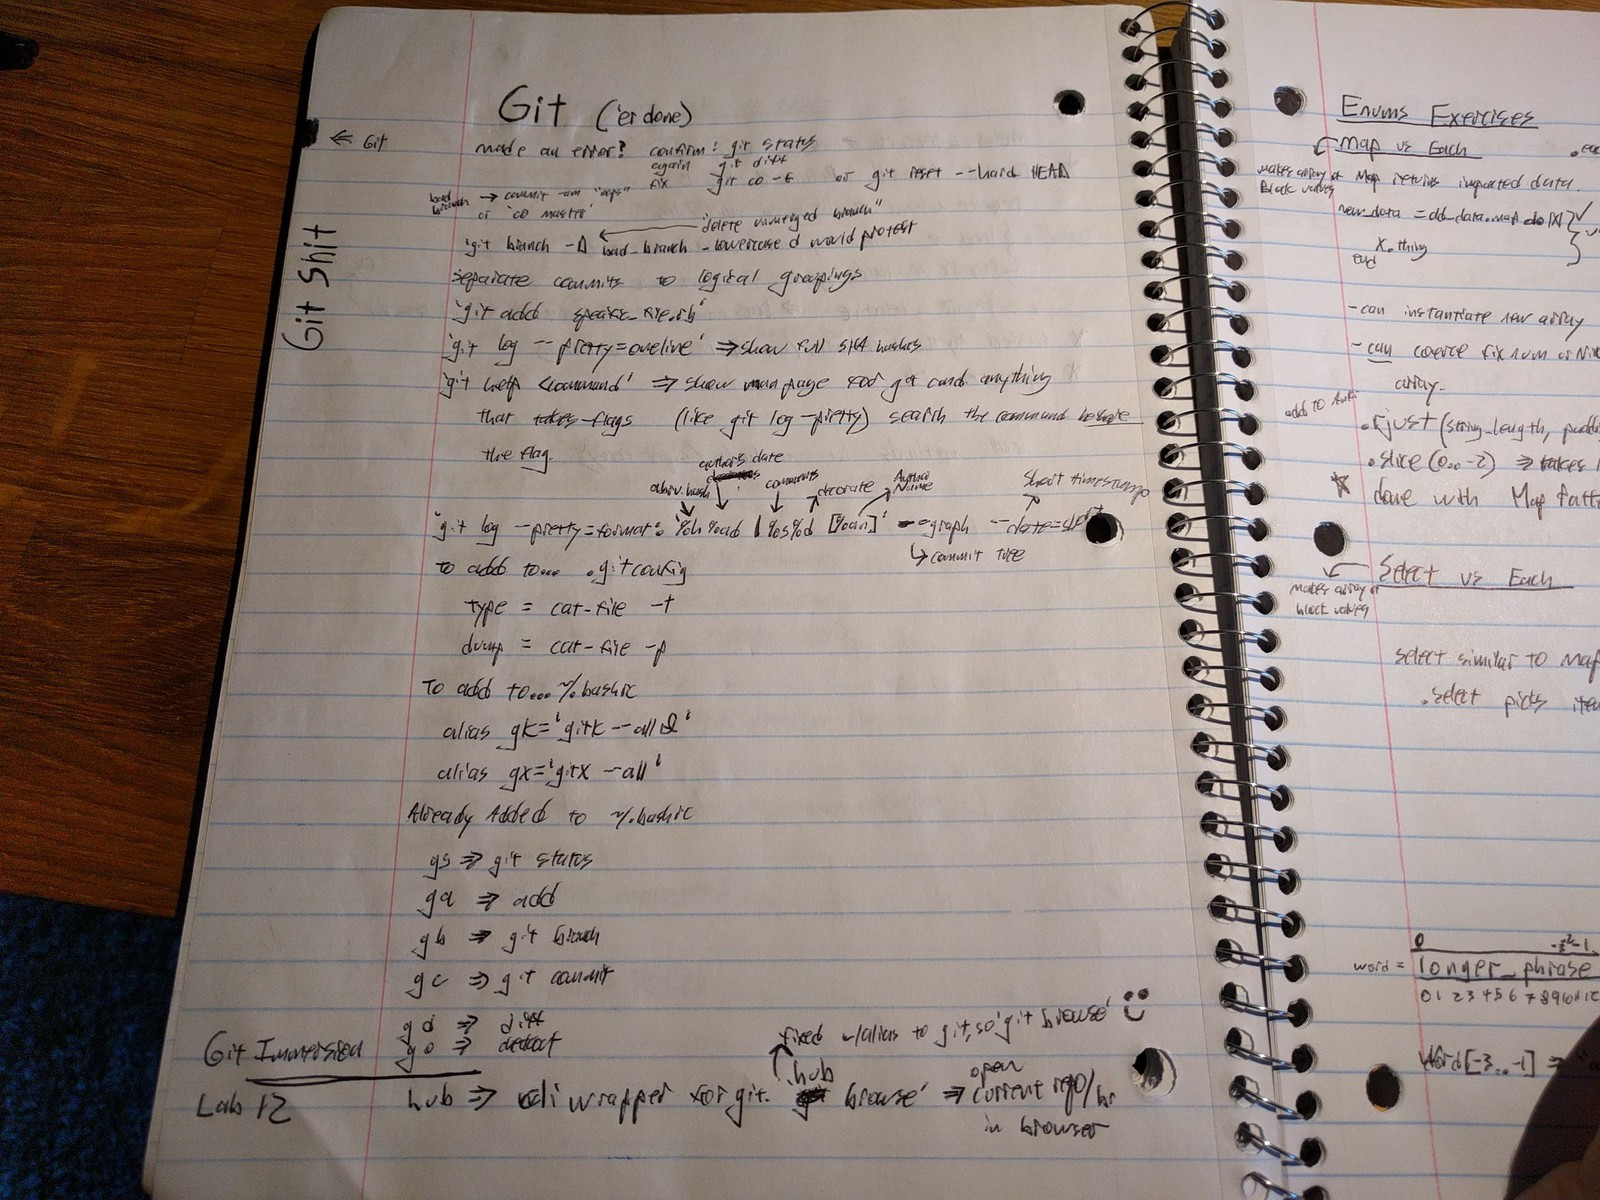 Git ('er done)
← Git
Git Shit
made an error? confirm: git status
again git diff
fix git co -f or git reset --hard HEAD
bad branch → commit -am "oops"
or 'co master'
"delete unmerged branch"
'git branch -D bad_branch - lowercase d would protest
separate commits to logical groupings
'git add specific_file.rb'
'git log --pretty=oneline' ⇒ show full SHA hashes
'git help <command>' ⇒ show man page for git cmd. anything
that takes flags (like git log --pretty) search the command before
the flag
author's date
abbrv. hash comments decorate Author Name short timestamp
'git log --pretty=format: '%h %ad | %s%d [%an]' --graph --date=short
↳ commit tree
To add to... .gitconfig
type = cat-file -t
dump = cat-file -p
To add to... ~/.bashrc
alias gk='gitk --all&'
alias gx='gitx --all'
Already Added to ~/.bashrc
gs ⇒ git status
ga ⇒ add
gb ⇒ git branch
gc ⇒ git commit
gd ⇒ diff
go ⇒
Git Immersed
Lab 12
fixed w/alias to git, so 'git browse'
hub open
hub ⇒ cli wrapper for git. browse' ⇒ current repo/br
in browser
Enums Exercises
Map vs Each
makes array of block values
Map returns impacted data.
new_data = db_data.map do |x|
x.thing
end
- can instantiate new array
- can coerce fixnum or
array.
add to Anki
.rjust(string_length,
.slice(0..-2) ⇒ takes
done with Map
Select vs Each
makes array of
block values
select similar to Map
.select picks
0 -2 -1
word = longer_phrase
0 1 2 3 4 5 6 7 8 9 10 11 12
Word[-3..-1] ⇒